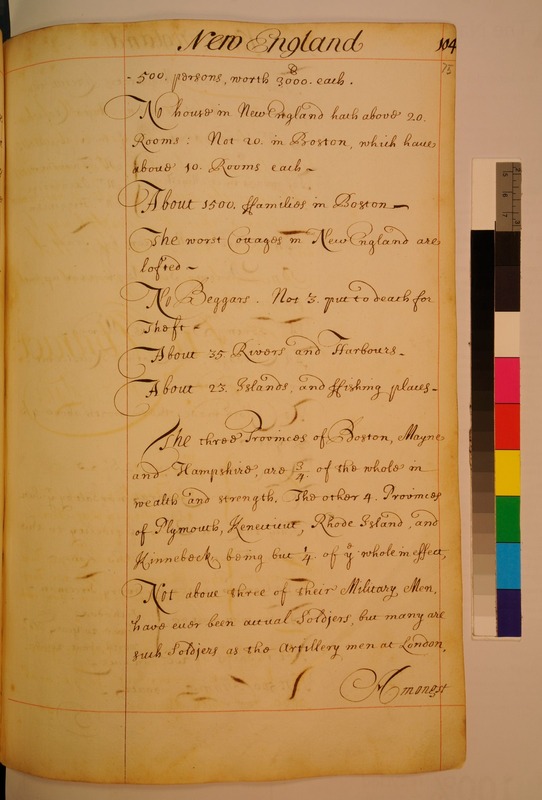 New England 104
75
- 500. persons, worth 3000. each.
No house in New England hath above 20.
Rooms: Not 20. in Boston, which have
above 10. Rooms each -
About 1500. ffamilies in Boston -
The worst Cottages in New England are
lofted -
No Beggars. Not 3. put to death for
Theft -
About 35 Rivers and Harbours -
About 23. Islands, and ffishing places -
The three Provinces of Boston, Mayne
and Hampshire, are 3/4 of the whole in
wealth and strength, The other 4. Provinces
of Plymouth, Kenecticut, Rhode Island, and
Kinnebeck, being but 1/4. of ye whole in effect,
Not above three of their Military Men,
have ever been actual Soldjers, but many are
such Soldjers as the Artillery men at London,
Amongst